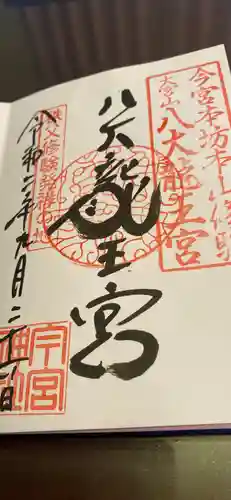 今宮本坊本山修験
大宮山
八大龍王宮
八大龍王宮
秩父修験発祥
令和三年九月二十一日
今宮神社